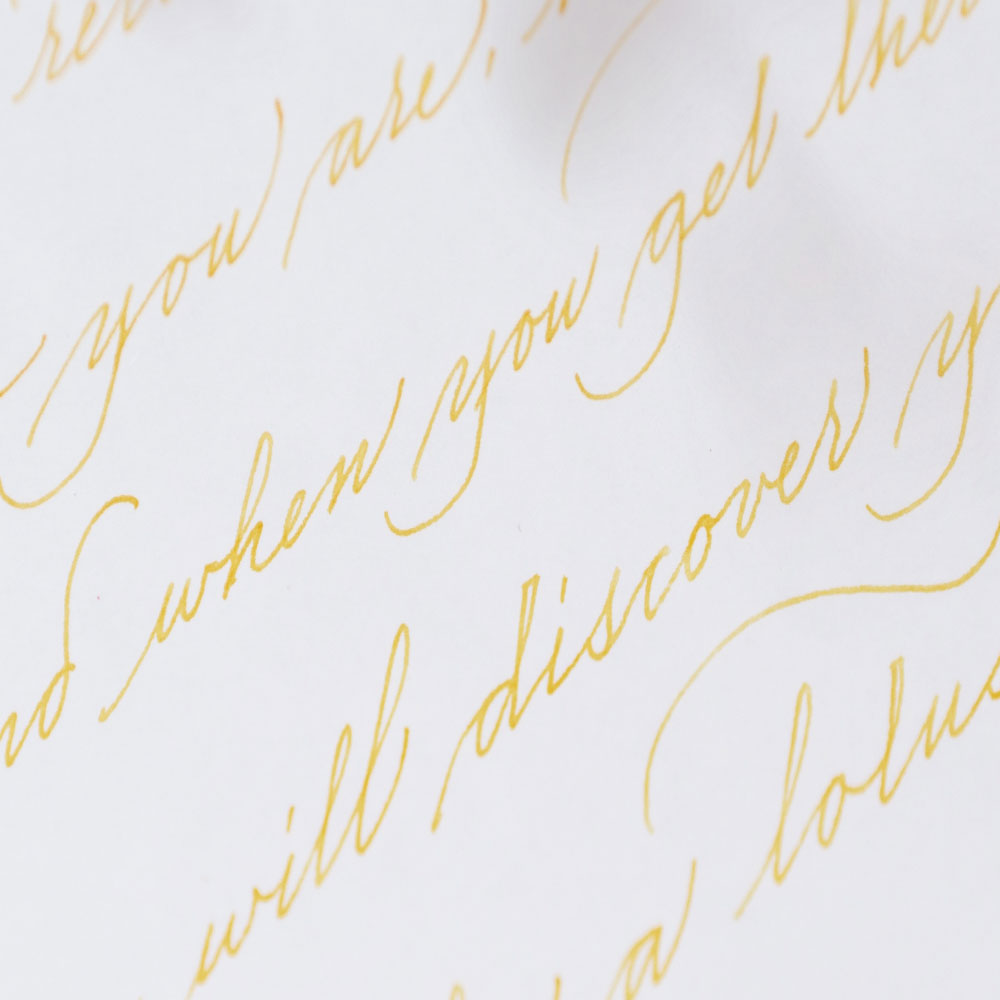 you are,
when you get
will discover
a lotus